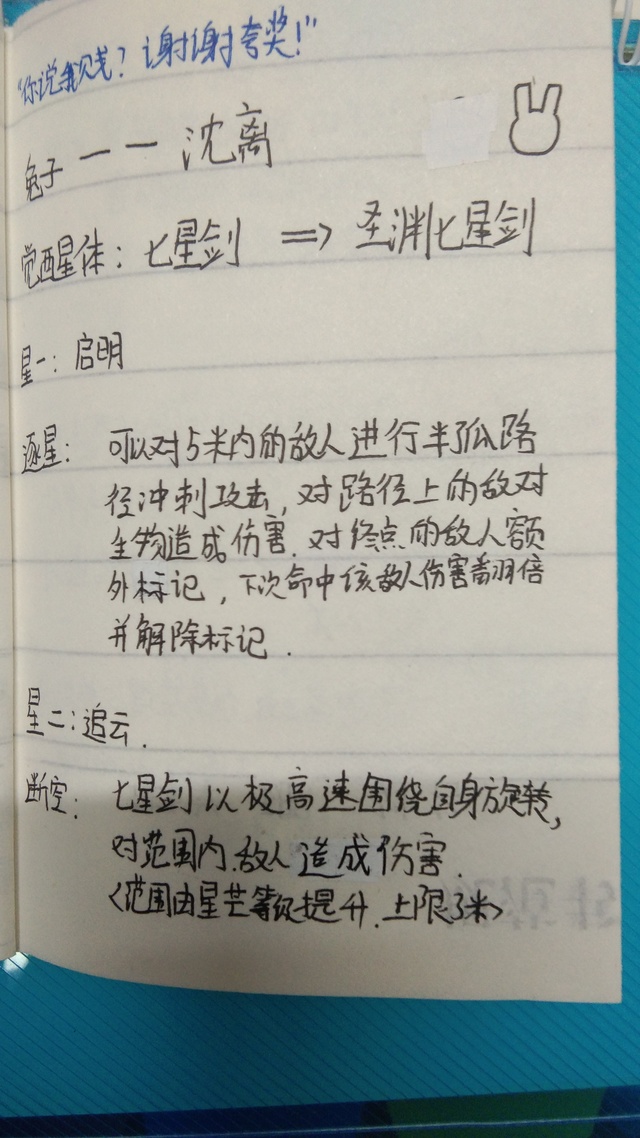 "你说我贱？谢谢夸奖！"
兔子——沈离
觉醒星体：七星剑 => 圣渊七星剑
星一：启明
逐星：可以对5米内的敌人进行半弧路
径冲刺攻击，对路径上的敌对
生物造成伤害.对终点的敌人额
外标记，下次命中该敌人伤害翻倍
并解除标记.
星二：追云.
断空：七星剑以极高速围绕自身旋转，
对范围内敌人造成伤害.
<范围由星芒等级提升.上限3米>